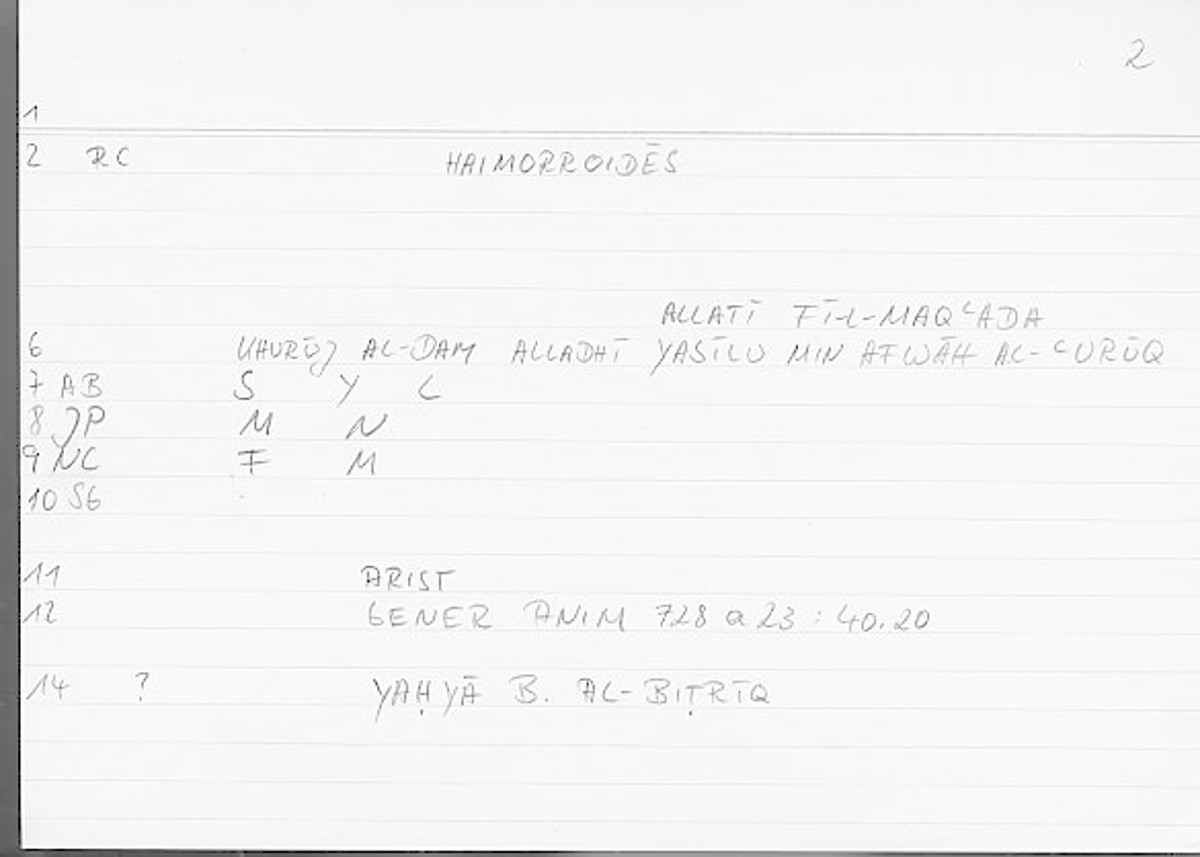 2
1
2 RC HAIMORROIDĒS
ALLATĪ FĪ-L-MAQʿADA
6 KHURŪJ AL-DAM ALLADHĪ YASĪLU MIN AFWĀH AL-ʿURŪQ
7 AB S Y L
8 JP M N
9 NC F M
10 SG
11 ARIST
12 GENER ANIM 728 a 23 : 40.20
14 ? YAḤYĀ B. AL-BIṬRĪQ